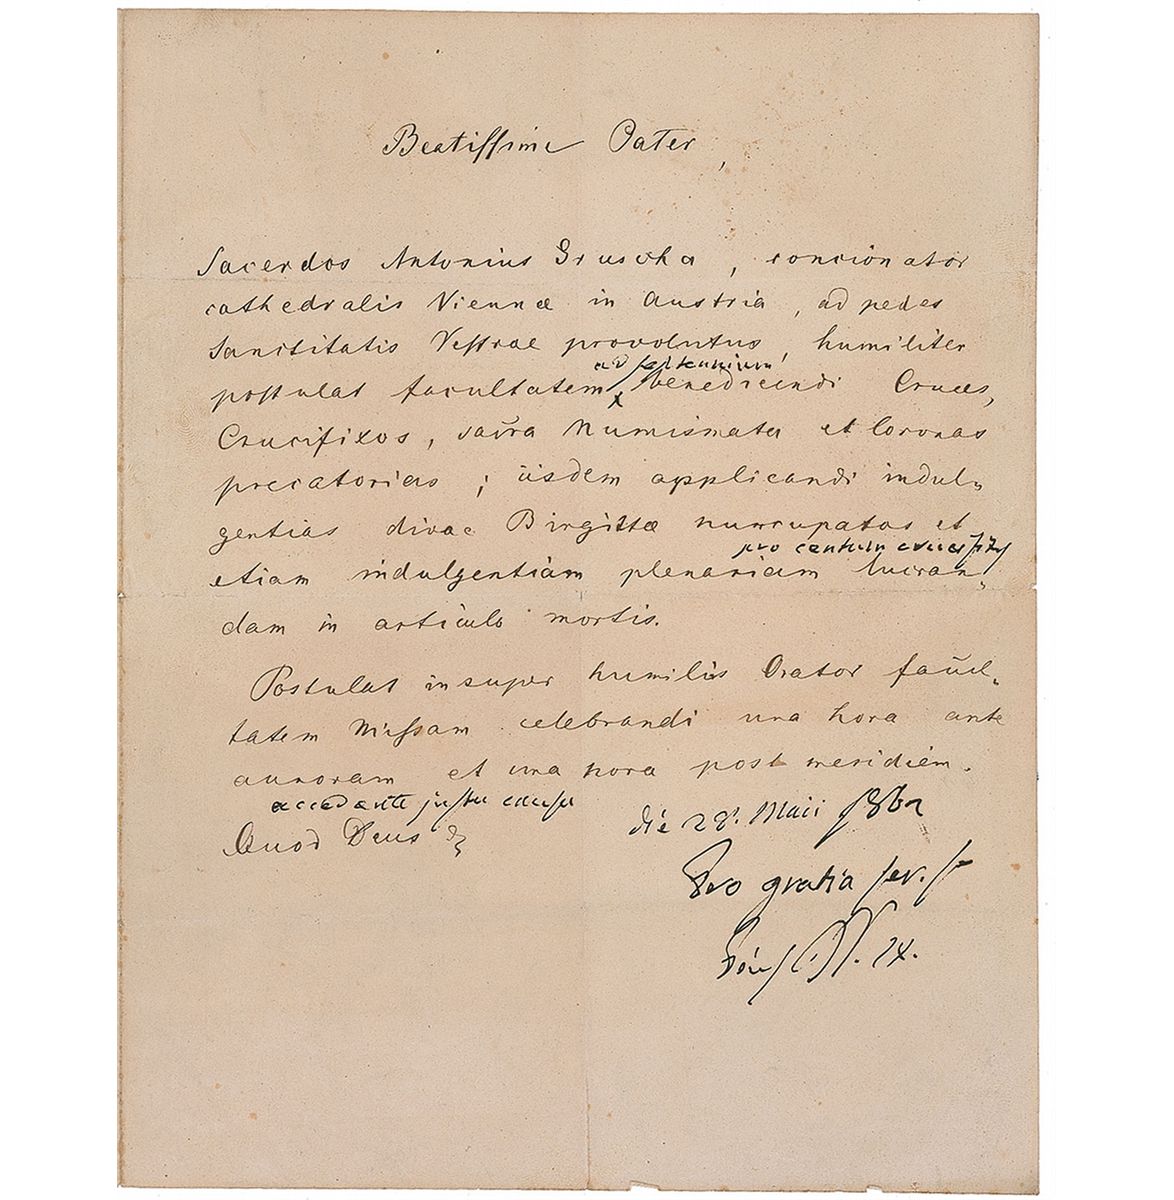 Beatissime Pater,
Sacerdos Antonius Gruscha, concionator
cathedralis Viennæ in Austria, ad pedes
Sanctitatis Vestrae provolutus, humiliter
ad septennium
postulat facultatem benedicendi Cruces,
Crucifixos, sacra Numismata et Coronas
precatorias; iisdem applicandi indul-
gentias divae Birgittæ nuncupatas et
pro centum
etiam indulgentiam plenariam lucran-
dam in articulo mortis.
Postulat insuper humilis Orator facul-
tatem Missam celebrandi una hora ante
auroram et una hora post meridiem.
accedente justa causa
Quod Deus
die 28. Maii 1862
Pro gratia
Pius P. IX.